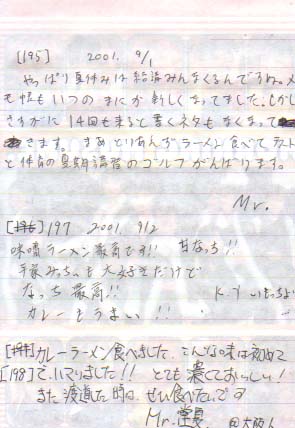 [195] 2001. 9/1
やっぱり夏休みは みんなくるんですね。メ
モ帳も いつのまにか 新しくなってました。しかし
さすがに 14回も来ると 書くネタもなくなって
きます。まあ とりあえず ラーメン食べて テスト
と体育の夏期講習の ゴルフがんばります。
Mr.
197 2001 9/2
味噌ラーメン最高です!! 甘なっち!!
平家みっちぃも 大好きだけど
なっち 最高!!
カレーもうまい!! K.Y
カレーラーメン食べました。こんな味は初めて
[198] で、ハマりました!! とても 濃くておいしい!
また渡道した時は、ぜひ食べたいです
Mr. 大阪人